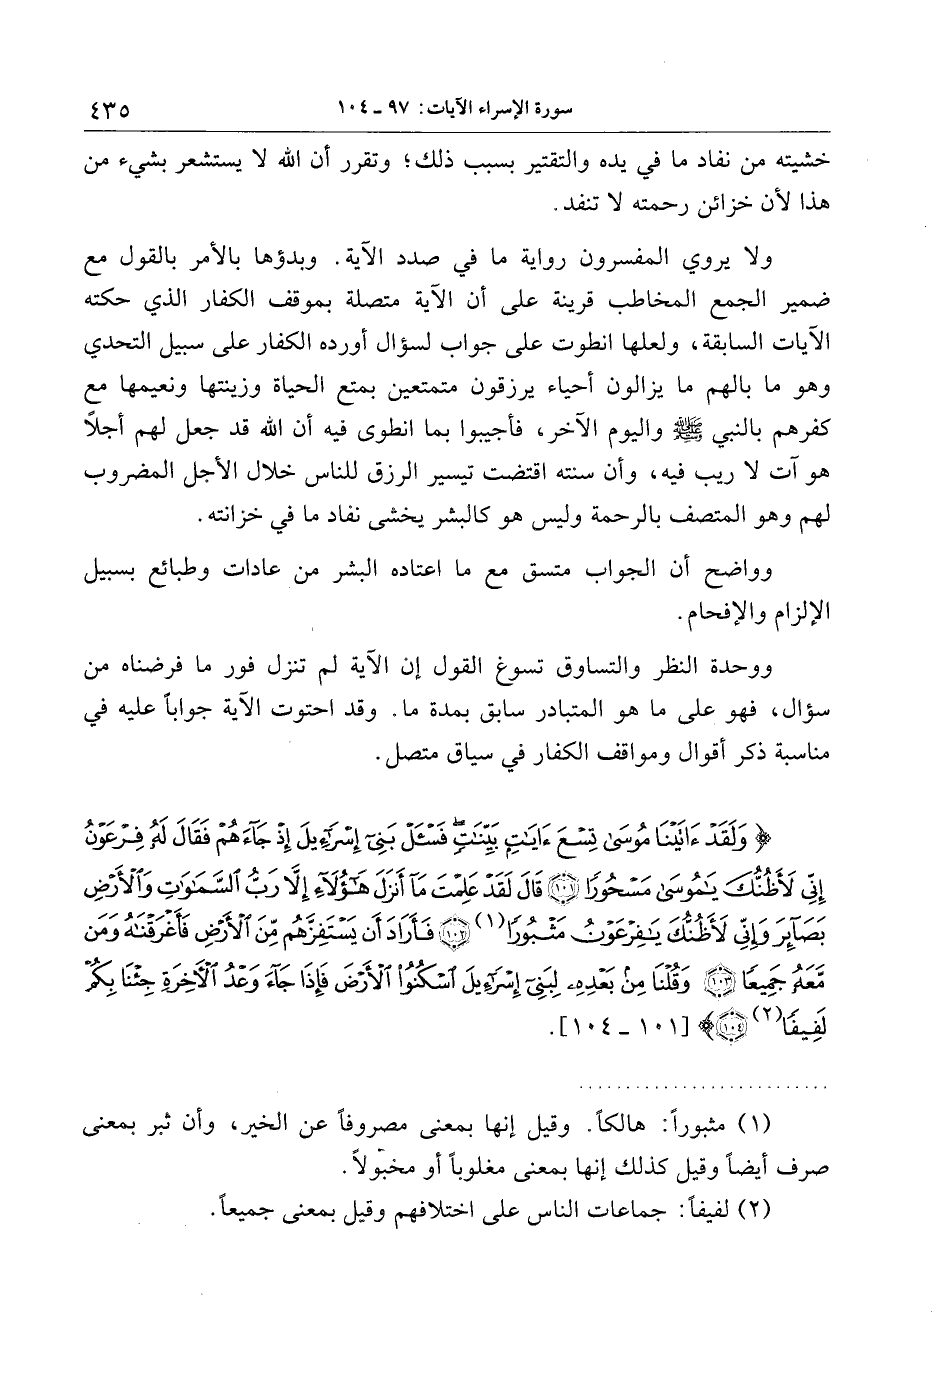 سورة الإسراء الآيات: ٩٧ ـ ١٠٤ ٤٣٥
خشيته من نفاد ما في يده والتقتير بسبب ذلك؛ وتقرر أن الله لا يستشعر بشيء من
هذا لأن خزائن رحمته لا تنفد.
ولا يروي المفسرون رواية ما في صدد الآية. وبدؤها بالأمر بالقول مع
ضمير الجمع المخاطب قرينة على أن الآية متصلة بموقف الكفار الذي حكته
الآيات السابقة، ولعلها انطوت على جواب لسؤال أورده الكفار على سبيل التحدي
وهو ما بالهم ما يزالون أحياء يرزقون متمتعين بمتع الحياة وزينتها ونعيمها مع
كفرهم بالنبي ﷺ واليوم الآخر، فأجيبوا بما انطوى فيه أن الله قد جعل لهم أجلاً
هو آت لا ريب فيه، وأن سنته اقتضت تيسير الرزق للناس خلال الأجل المضروب
لهم وهو المتصف بالرحمة وليس هو كالبشر يخشى نفاد ما في خزانته.
وواضح أن الجواب متسق مع ما اعتاده البشر من عادات وطبائع بسبيل
الإلزام والإفحام.
ووحدة النظر والتساوق تسوغ القول إن الآية لم تنزل فور ما فرضناه من
سؤال، فهو على ما هو المتبادر سابق بمدة ما. وقد احتوت الآية جواباً عليه في
مناسبة ذكر أقوال ومواقف الكفار في سياق متصل.
﴿ وَلَقَدْ ءَاتَيْنَا مُوسَىٰ تِسْعَ ءَايَٰتٍۭ بَيِّنَٰتٍۖ فَسْـَٔلْ بَنِىٓ إِسْرَٰٓءِيلَ إِذْ جَآءَهُمْ فَقَالَ لَهُۥ فِرْعَوْنُ
إِنِّى لَأَظُنُّكَ يَٰمُوسَىٰ مَسْحُورًا ١٠١ قَالَ لَقَدْ عَلِمْتَ مَآ أَنزَلَ هَٰٓؤُلَآءِ إِلَّا رَبُّ ٱلسَّمَٰوَٰتِ وَٱلْأَرْضِ
بَصَآئِرَ وَإِنِّى لَأَظُنُّكَ يَٰفِرْعَوْنُ مَثْبُورًا (١) ١٠٢ فَأَرَادَ أَن يَسْتَفِزَّهُم مِّنَ ٱلْأَرْضِ فَأَغْرَقْنَٰهُ وَمَن
مَّعَهُۥ جَمِيعًا ١٠٣ وَقُلْنَا مِنۢ بَعْدِهِۦ لِبَنِىٓ إِسْرَٰٓءِيلَ ٱسْكُنُوا۟ ٱلْأَرْضَ فَإِذَا جَآءَ وَعْدُ ٱلْءَاخِرَةِ جِئْنَا بِكُمْ
لَفِيفًا (٢) ١٠٤ ﴾ [١٠١ ـ ١٠٤].
(١) مثبوراً: هالكاً. وقيل إنها بمعنى مصروفاً عن الخير، وأن ثبر بمعنى
صرف أيضاً وقيل كذلك إنها بمعنى مغلوباً أو مخبّولاً.
(٢) لفيفاً: جماعات الناس على اختلافهم وقيل بمعنى جميعاً.